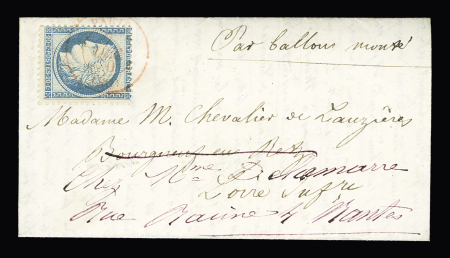 Par ballon monté
Madame M. Chevalier de Lauzières
Bourgneuf en Retz
Chez Mme D. Lamarre
Loire Infre
Rue Racine 4 Nantes